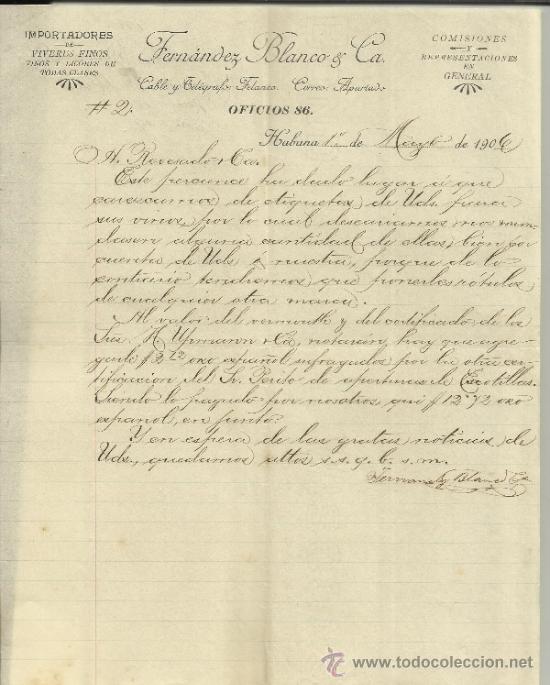 IMPORTADORES
DE
VIVERES FINOS
VINOS Y LICORES DE
TODAS CLASES
Fernández Blanco & Ca.
Cable y Telégrafo: Felanco. Correo: Apartado
COMISIONES
Y
REPRESENTACIONES
EN
GENERAL
#2.
OFICIOS 86.
Habana 1º de Mayo de 1906
A. Reverado & Ca.
Este percance ha dado lugar á que
carescamos de etiquetas de Uds. para
sus vinos, por lo cual desearíamos nos man-
dasen alguna cantidad de ellas, bien por
cuenta de Uds ó nuestra, porque de lo
contrario tendremos que ponerles rótulos
de cualquier otra marca.
Al valor del vermouth y del certificado de los
Sres. H. Upmann & Ca, notarán, hay que agre-
garle $2.72 oro español sufragados por la otra cer-
tificacion del Sr. Perito de averias de
siendo lo pagado por nosotros, qui $12.72 oro
español, en junto.
Y en espera de las gratas noticias de
Uds., quedamos attos s. s. q. b. s. m.
Fernandez Blanco Ca
www.todocoleccion.net